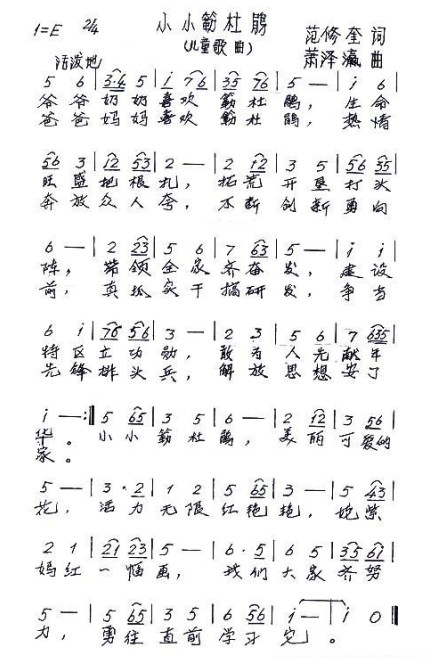 小小簕杜鹃
1=E 2/4 (儿童歌曲) 范修奎 词
活泼地 萧泽瀛 曲
5 6 | 3·4 5 | i 7 6 | 3 5 7 6 | 5 — | i 6 |
爷爷奶奶喜欢簕杜鹃,生命
爸爸妈妈喜欢簕杜鹃,热情
5 6 3 | 1 2 5 3 | 2 — | 2 1 2 | 3 5 | 5 6 3 5 |
旺盛把根扎,拓荒开垦打头
奔放众人夸,不断创新勇向
6 — | 2 2 3 | 5 6 | 7 6 3 | 5 — | i i |
阵,带领全家齐奋发,建设
前,真抓实干搞研发,争当
6 i | 7 6 5 6 | 3 — | 2 3 | 5 6 | 7 6 3 5 |
特区立功勋,敢为人先献年
先锋排头兵,解放思想安了
i — :‖ 5 6 5 | 3 5 | 6 — | 2 1 2 | 3 5 6 |
华。小小簕杜鹃,美丽可爱的
家。
5 — | 3·2 | 1 2 | 5 6 5 | 3 — | 5 4 3 |
花,活力无限红艳艳,姹紫
2 1 | 2 1 2 3 | 5 — | 6·5 | 6 5 | 3 5 6 1 |
嫣红一幅画,我们大家齐努
5 — | 5 6 5 | 3 5 | 6 5 6 | i — | i 0 ‖
力,勇往直前学习它。